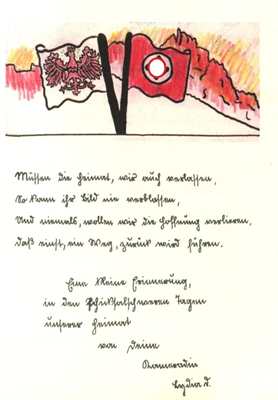 Müssen die Heimat, wir auch verlassen,
So kann ihr Bild nie verblassen,
Und niemals, wollen wir die Hoffnung verlieren,
Daß einst, ein Weg, zurück wird führen.
Eine kleine Erinnerung,
in den schicksalschweren Tagen
unserer Heimat
von Deiner
Kameradin
Lydia